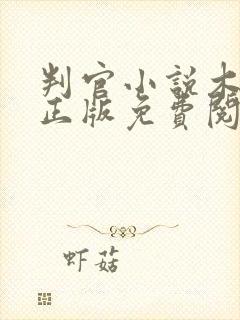 判官小说木
正版免費閱
虾菇